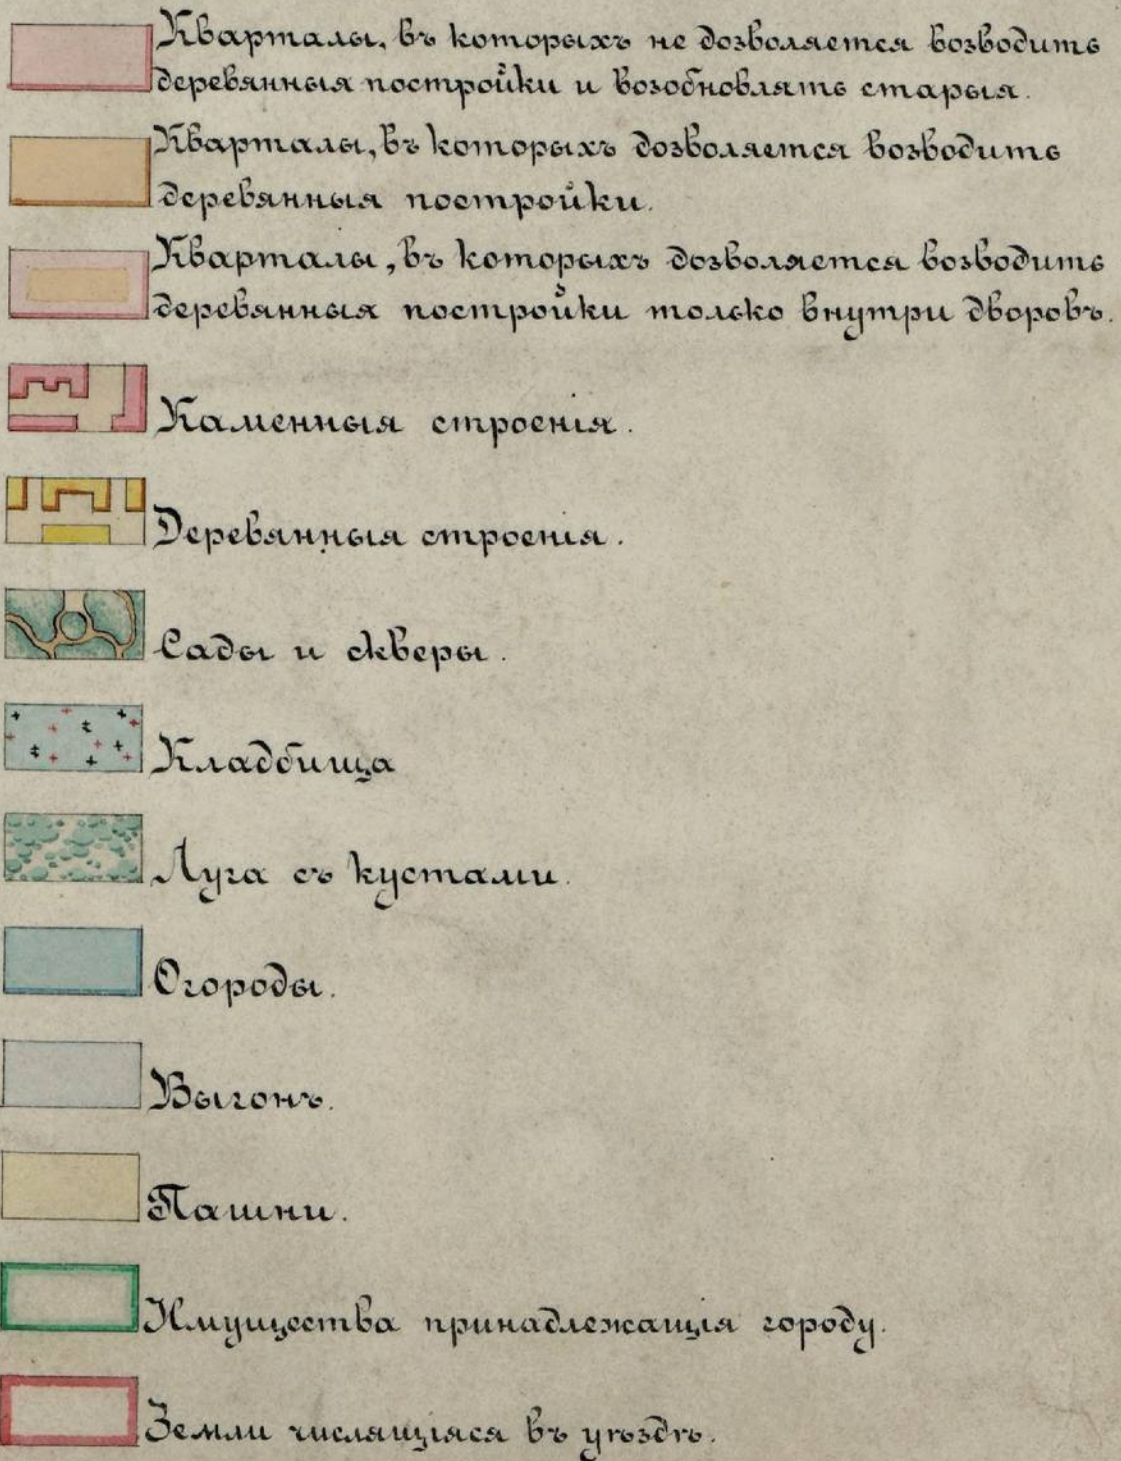 Кварталы, въ которыхъ не дозволяется возводить
деревянныя постройки и возобновлять старыя.
Кварталы, въ которыхъ дозволяется возводить
деревянныя постройки.
Кварталы, въ которыхъ дозволяется возводить
деревянныя постройки только внутри дворовъ.
Каменныя строенія.
Деревянныя строенія.
Сады и скверы.
Кладбища
Луга съ кустами.
Огороды.
Выгонъ.
Пашни.
Имущества принадлежащія городу.
Земли числящіяся въ уѣздѣ.